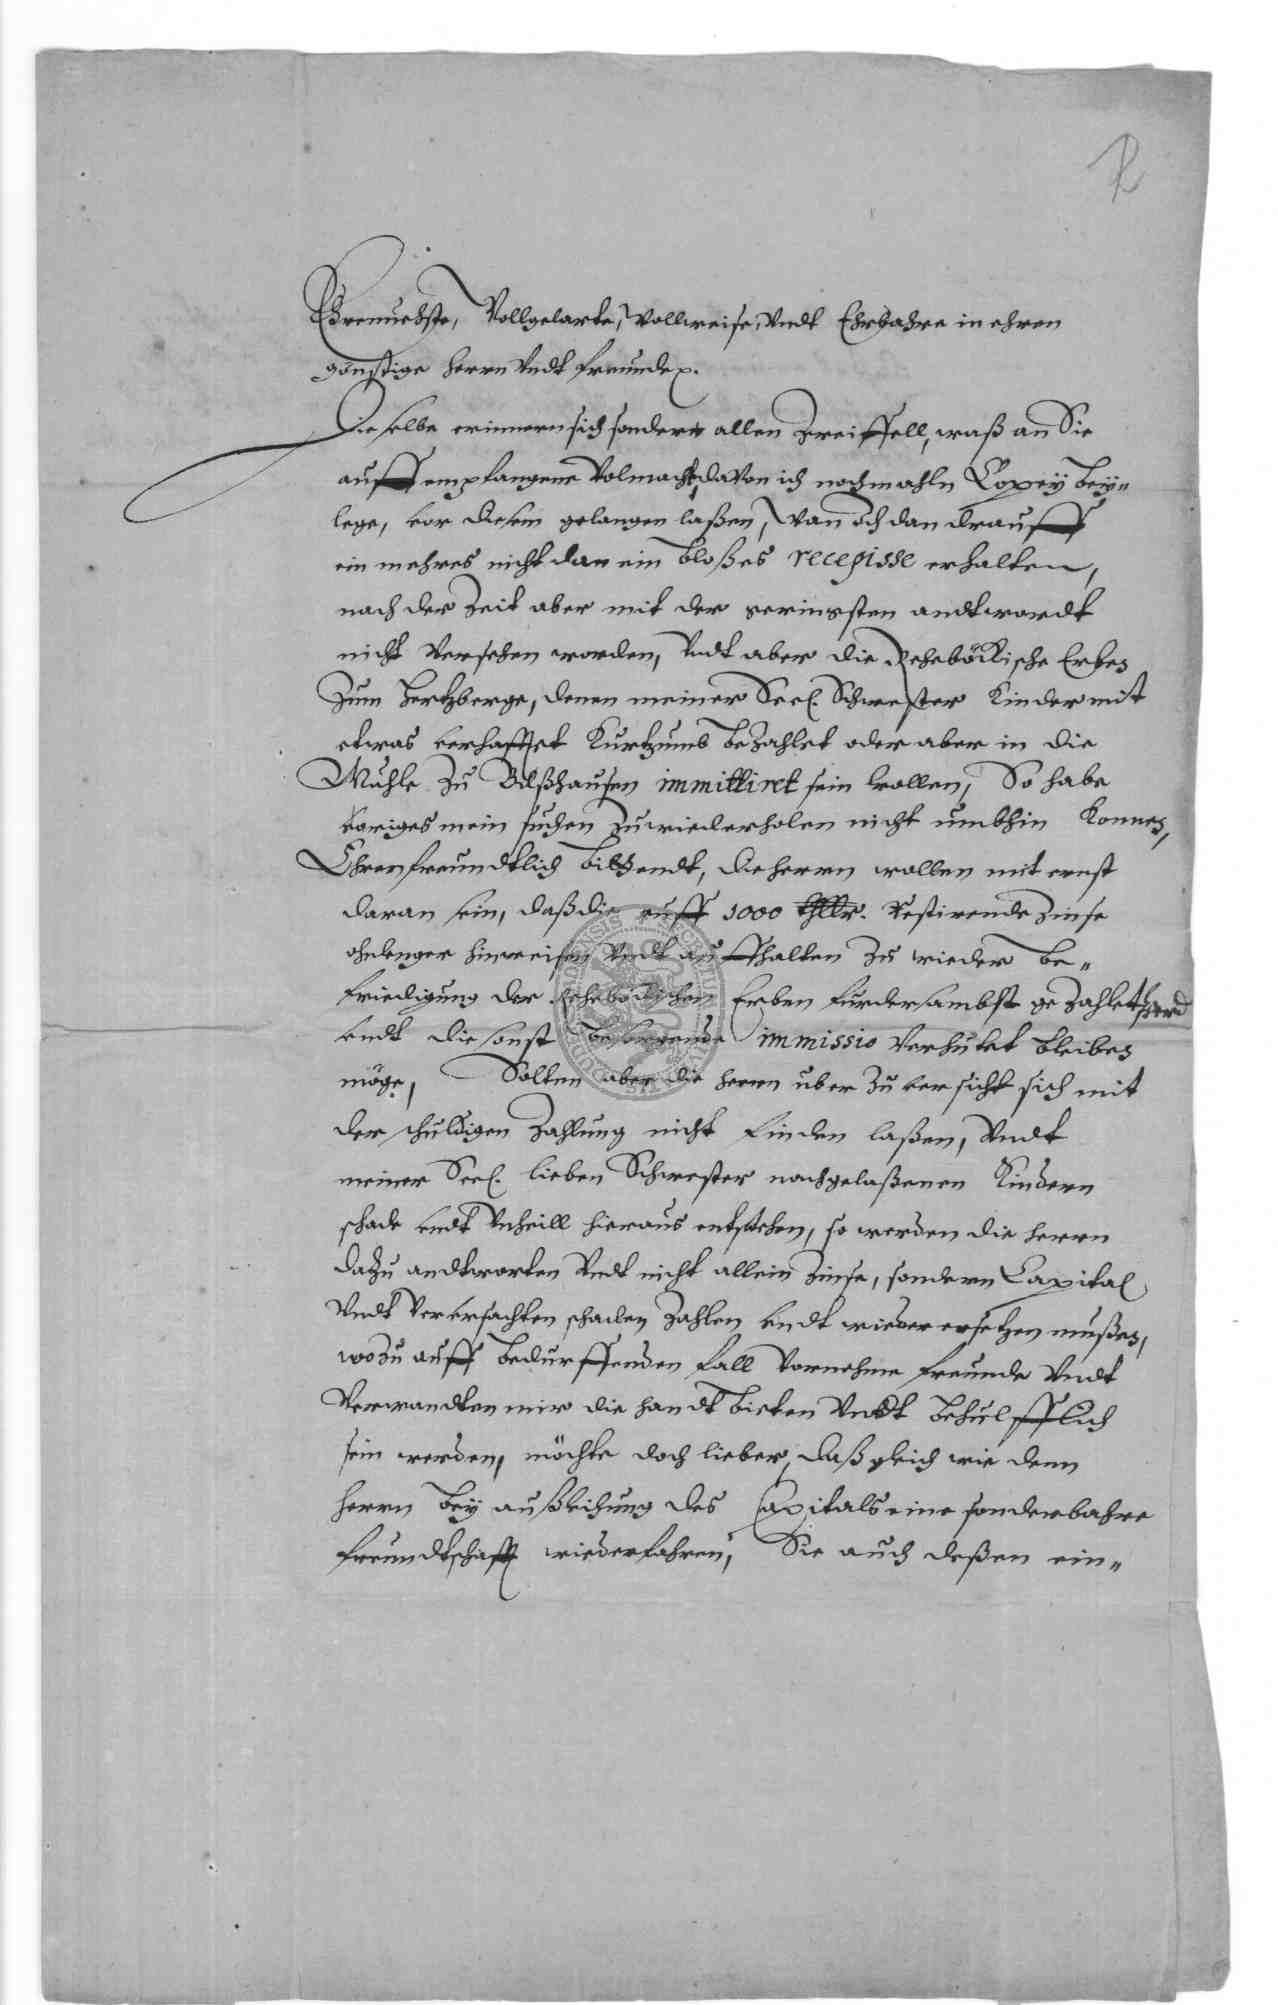 R
Ehrenuehste, Vollgelarte, Vollweise, Undt Ehrbahre in ehren
günstige herrn Undt freunde p.
Dieselbe erinnern sich sonder allen Zweiffell, waß an Sie
auff empfangene Volmacht, davon ich nochmahln Copey bey=
lege, vor diesem gelangen laßen, Wan ich dan drauff
ein mehres nicht dan ein bloßes recepisse erhalten,
nach der Zeit aber mit der geringsten andtwordt
nicht Versehen worden, Undt aber die Rehebökische Erben
Zum Hertzberge, denen meiner Seel. Schwester Kinder mit
etwas verhafftet Kurtzumb beZahlet oder aber in die
Muhle Zu Bilßhausen immittiret sein wollen, So habe
voriges mein suchen Zuwiederholen nicht umbhin Konnen,
Ehrenfreundtlich bittendt, die herrn wollen mit ernst
daran sein, daß die auff 1000 thllr. Restirende Zinse
ohnlenger hinweisen Undt auffhalten Zu wieder be=
friedigung der Rehebökischen Erben furdersambst geZahlet werd
vndt die sonst besorgende immissio Verhutet bleiben
möge, Solten aber die herrn uber Zuversicht sich mit
der schuldigen Zahlung nicht finden laßen, Undt
meiner Seel. lieben Schwester nachgelaßenen Kindern
schade vndt Unheill hieraus entstehen, so werden die herrn
daZu andtworten Undt nicht allein Zinse, sondern Capital
Undt Verursachten schaden Zahlen vndt wieder ersetzen mußen,
woZu auff bedurffenden fall Vornehme freunde Undt
Verwandten mir die handt bieten Undt behulfflich
sein werden, möchte doch lieber, daß gleich wie denn
herrn bey außleihung des Capitals eine sonderbahre
freundtschafft wiederfahren, Sie auch deßen ein=